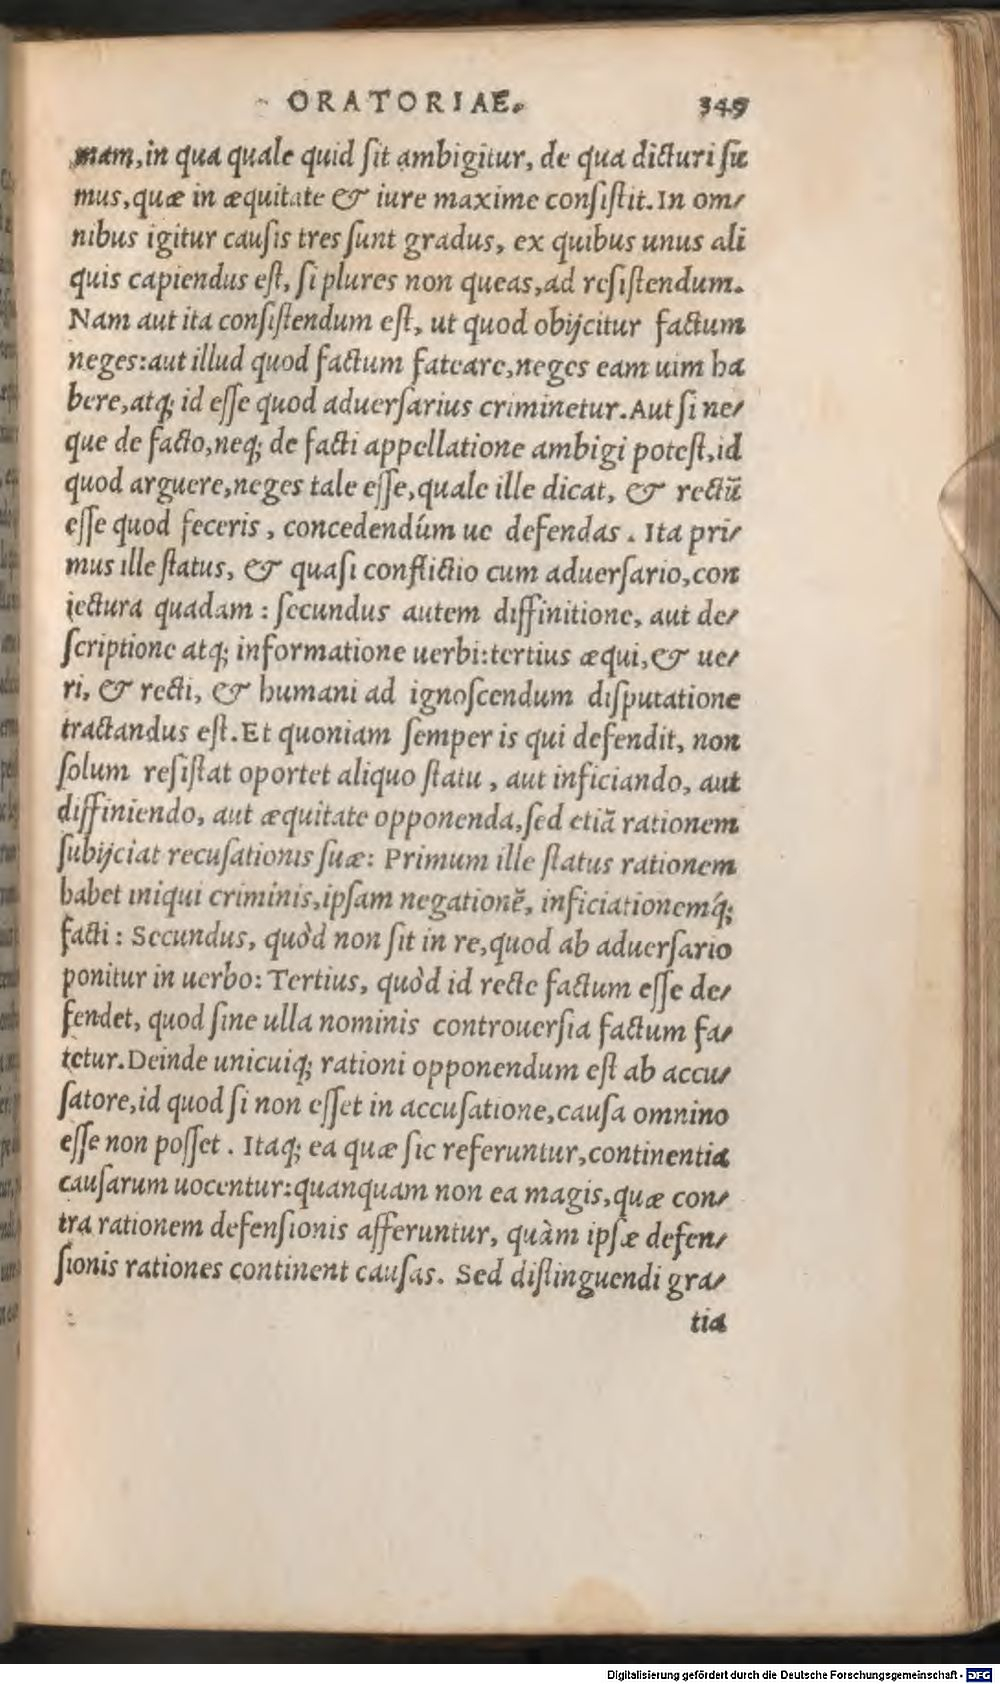 ORATORIAE. 349
mam, in qua quale quid ſit ambigitur, de qua dicturi ſu
mus, quæ in æquitate & iure maxime conſiſtit. In om-
nibus igitur cauſis tres ſunt gradus, ex quibus unus ali
quis capiendus eſt, ſi plures non queas, ad reſiſtendum.
Nam aut ita conſiſtendum eſt, ut quod obijcitur factum
neges: aut illud quod factum fateare, neges eam uim ha
bere, atq; id eſſe quod aduerſarius criminetur. Aut ſi ne-
que de facto, neq; de facti appellatione ambigi poteſt, id
quod arguere, neges tale eſſe, quale ille dicat, & rectũ
eſſe quod feceris, concedendúm ue defendas. Ita pri-
mus ille ſtatus, & quaſi conflictio cum aduerſario, con
iectura quadam: ſecundus autem diffinitione, aut de-
ſcriptione atq; informatione uerbi: tertius æqui, & ue-
ri, & recti, & humani ad ignoſcendum diſputatione
tractandus eſt. Et quoniam ſemper is qui defendit, non
ſolum reſiſtat oportet aliquo ſtatu, aut inficiando, aut
diffiniendo, aut æquitate opponenda, ſed etiã rationem
ſubijciat recuſationis ſuæ: Primum ille ſtatus rationem
habet iniqui criminis, ipſam negationẽ, inficiationemq́;
facti: Secundus, quòd non ſit in re, quod ab aduerſario
ponitur in uerbo: Tertius, quòd id recte factum eſſe de-
fendet, quod ſine ulla nominis controuerſia factum fa-
tetur. Deinde unicuiq; rationi opponendum eſt ab accu-
ſatore, id quod ſi non eſſet in accuſatione, cauſa omnino
eſſe non poſſet. Itaq; ea quæ ſic referuntur, continentia
cauſarum uocentur: quanquam non ea magis, quæ con-
tra rationem defenſionis afferuntur, quàm ipſæ defen-
ſionis rationes continent cauſas. Sed diſtinguendi gra-
tia
Digitalisierung gefördert durch die Deutsche Forschungsgemeinschaft - DFG